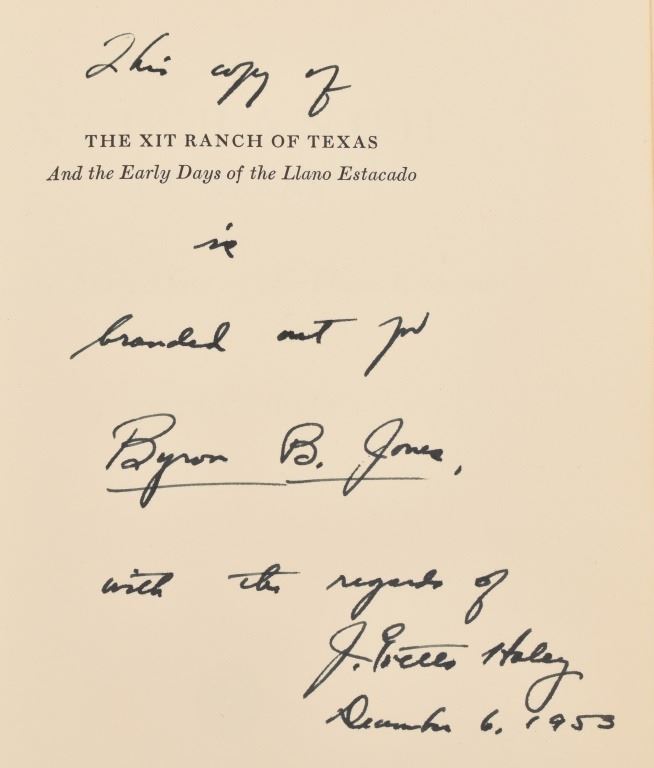 This copy of
THE XIT RANCH OF TEXAS
And the Early Days of the Llano Estacado
is
branded out for
Byron B. Jones,
with the regards of
J. Evetts Haley
December 6, 1953